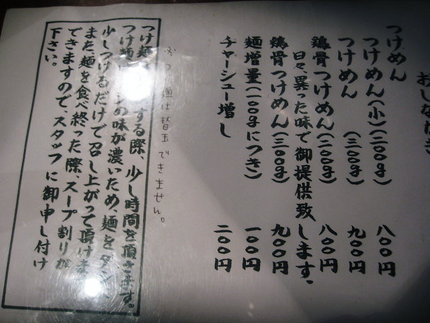 おしながき
つけめん
つけめん(小)(二〇〇g) 八〇〇円
つけめん (三〇〇g) 九〇〇円
鶏骨つけめん(二〇〇g) 八〇〇円
日々異った味で御提供致します。
鶏骨つけめん(三〇〇g) 九〇〇円
麺増量(一〇〇gにつき) 一〇〇円
チャーシュー増し 二〇〇円
は替玉できません。
つけ麺 する際、少し時間を頂きます。
つけ麺 の味が濃いため、麺をタレに
少しつけるだけで召し上がって頂けます
また麺を食べ終った際、スープ割りが
できますので、スタッフに御申し付け
下さい。